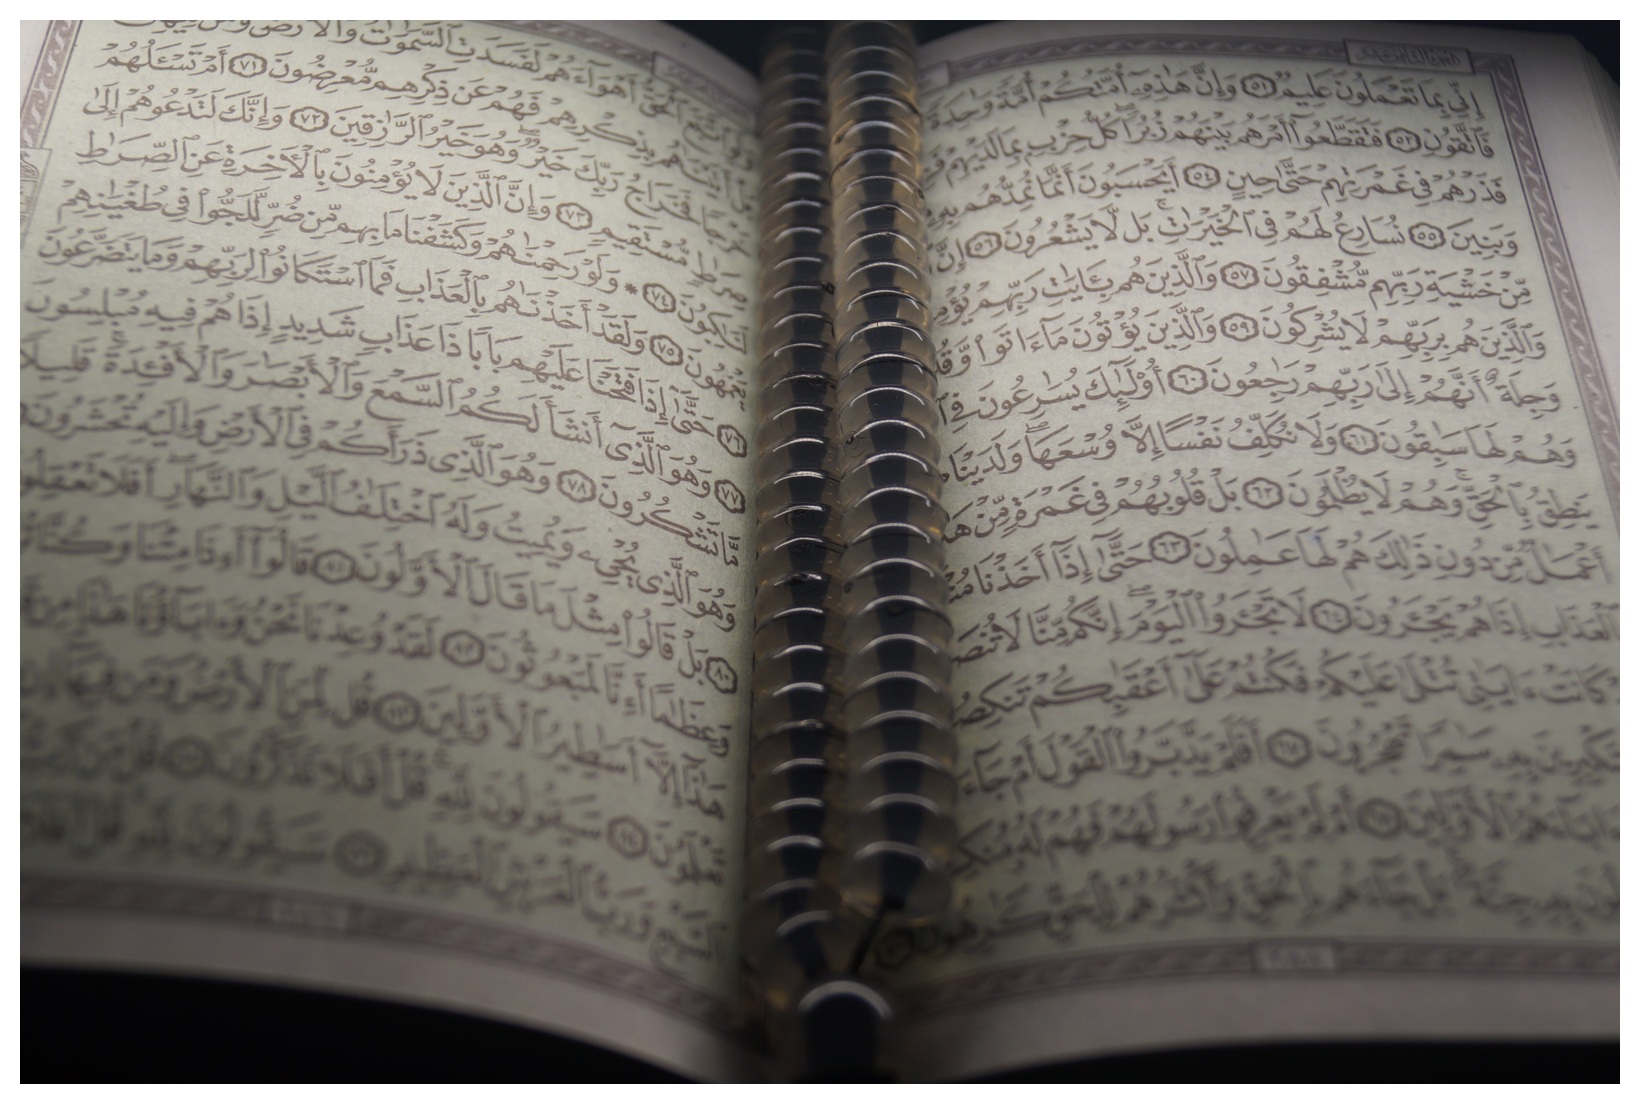 الجزء الثامن عشر
إِنِّي بِمَا تَعْمَلُونَ عَلِيمٌ ٥١ وَإِنَّ هَٰذِهِۦٓ أُمَّتُكُمْ أُمَّةً وَٰحِدَةً
فَٱتَّقُونِ ٥٢ فَتَقَطَّعُوٓاْ أَمْرَهُم بَيْنَهُمْ زُبُرٗاۖ كُلُّ حِزْبِۭ بِمَا لَدَيْهِمْ
فَذَرْهُمْ فِي غَمْرَتِهِمْ حَتَّىٰ حِينٍ ٥٤ أَيَحْسَبُونَ أَنَّمَا نُمِدُّهُم بِهِۦ
وَبَنِينَ ٥٥ نُسَارِعُ لَهُمْ فِي ٱلْخَيْرَٰتِۚ بَل لَّا يَشْعُرُونَ ٥٦ إِنَّ
مِّنْ خَشْيَةِ رَبِّهِم مُّشْفِقُونَ ٥٧ وَٱلَّذِينَ هُم بِـَٔايَٰتِ رَبِّهِمْ
وَٱلَّذِينَ هُم بِرَبِّهِمْ لَا يُشْرِكُونَ ٥٩ وَٱلَّذِينَ يُؤْتُونَ مَآ ءَاتَواْ وَّقُلُوبُهُمْ
وَجِلَةٌ أَنَّهُمْ إِلَىٰ رَبِّهِمْ رَٰجِعُونَ ٦٠ أُوْلَٰٓئِكَ يُسَٰرِعُونَ فِي
وَهُمْ لَهَا سَٰبِقُونَ ٦١ وَلَا نُكَلِّفُ نَفْسًا إِلَّا وُسْعَهَاۖ وَلَدَيْنَا
يَنطِقُ بِٱلْحَقِّۚ وَهُمْ لَا يُظْلَمُونَ ٦٢ بَلْ قُلُوبُهُمْ فِي غَمْرَةٍ مِّنْ هَٰذَا
أَعْمَٰلٌ مِّن دُونِ ذَٰلِكَ هُمْ لَهَا عَٰمِلُونَ ٦٣ حَتَّىٰٓ إِذَآ أَخَذْنَا
بِٱلْعَذَابِ إِذَا هُمْ يَجْـَٔرُونَ ٦٤ لَا تَجْـَٔرُواْ ٱلْيَوْمَۖ إِنَّكُم مِّنَّا لَا تُنصَرُونَ
كَانَتْ ءَايَٰتِي تُتْلَىٰ عَلَيْكُمْ فَكُنتُمْ عَلَىٰٓ أَعْقَٰبِكُمْ تَنكِصُونَ
مُسْتَكْبِرِينَ بِهِۦ سَٰمِرًا تَهْجُرُونَ ٦٧ أَفَلَمْ يَدَّبَّرُواْ ٱلْقَوْلَ أَمْ جَآءَهُم
ءَابَآءَهُمُ ٱلْأَوَّلِينَ ٦٨ أَمْ لَمْ يَعْرِفُواْ رَسُولَهُمْ فَهُمْ لَهُۥ مُنكِرُونَ
يَقُولُونَ بِهِۦ جِنَّةُۢۚ بَلْ جَآءَهُم بِٱلْحَقِّ وَأَكْثَرُهُمْ لِلْحَقِّ كَٰرِهُونَ ٧٠
وَلَوِ ٱتَّبَعَ ٱلْحَقُّ أَهْوَآءَهُمْ لَفَسَدَتِ ٱلسَّمَٰوَٰتُ وَٱلْأَرْضُ وَمَن فِيهِنَّ
بَلْ أَتَيْنَٰهُم بِذِكْرِهِمْ فَهُمْ عَن ذِكْرِهِم مُّعْرِضُونَ ٧١ أَمْ تَسْـَٔلُهُمْ
خَرْجًا فَخَرَاجُ رَبِّكَ خَيْرٌۖ وَهُوَ خَيْرُ ٱلرَّٰزِقِينَ ٧٢ وَإِنَّكَ لَتَدْعُوهُمْ إِلَىٰ
صِرَٰطٍ مُّسْتَقِيمٍ ٧٣ وَإِنَّ ٱلَّذِينَ لَا يُؤْمِنُونَ بِٱلْأٓخِرَةِ عَنِ ٱلصِّرَٰطِ
لَنَٰكِبُونَ ٧٤ * وَلَوْ رَحِمْنَٰهُمْ وَكَشَفْنَا مَا بِهِم مِّن ضُرٍّ لَّلَجُّواْ فِي طُغْيَٰنِهِمْ
يَعْمَهُونَ ٧٥ وَلَقَدْ أَخَذْنَٰهُم بِٱلْعَذَابِ فَمَا ٱسْتَكَانُواْ لِرَبِّهِمْ وَمَا يَتَضَرَّعُونَ
٧٦ حَتَّىٰٓ إِذَا فَتَحْنَا عَلَيْهِم بَابًا ذَا عَذَابٍ شَدِيدٍ إِذَا هُمْ فِيهِ مُبْلِسُونَ
٧٧ وَهُوَ ٱلَّذِيٓ أَنشَأَ لَكُمُ ٱلسَّمْعَ وَٱلْأَبْصَٰرَ وَٱلْأَفْـِٔدَةَۚ قَلِيلًا
مَّا تَشْكُرُونَ ٧٨ وَهُوَ ٱلَّذِي ذَرَأَكُمْ فِي ٱلْأَرْضِ وَإِلَيْهِ تُحْشَرُونَ
وَهُوَ ٱلَّذِي يُحْيِۦ وَيُمِيتُ وَلَهُ ٱخْتِلَٰفُ ٱلَّيْلِ وَٱلنَّهَارِۚ أَفَلَا تَعْقِلُونَ
٨٠ بَلْ قَالُواْ مِثْلَ مَا قَالَ ٱلْأَوَّلُونَ ٨١ قَالُوٓاْ أَءِذَا مِتْنَا وَكُنَّا
وَعِظَٰمًا أَءِنَّا لَمَبْعُوثُونَ ٨٢ لَقَدْ وُعِدْنَا نَحْنُ وَءَابَآؤُنَا هَٰذَا مِن
هَٰذَآ إِلَّآ أَسَٰطِيرُ ٱلْأَوَّلِينَ ٨٣ قُل لِّمَنِ ٱلْأَرْضُ وَمَن فِيهَآ إِن
تَعْلَمُونَ ٨٤ سَيَقُولُونَ لِلَّهِۚ قُلْ أَفَلَا تَذَكَّرُونَ ٨٥ قُلْ مَن رَّبُّ
ٱلسَّبْعِ وَرَبُّ ٱلْعَرْشِ ٱلْعَظِيمِ ٨٦ سَيَقُولُونَ لِلَّهِۚ قُلْ أَفَلَا